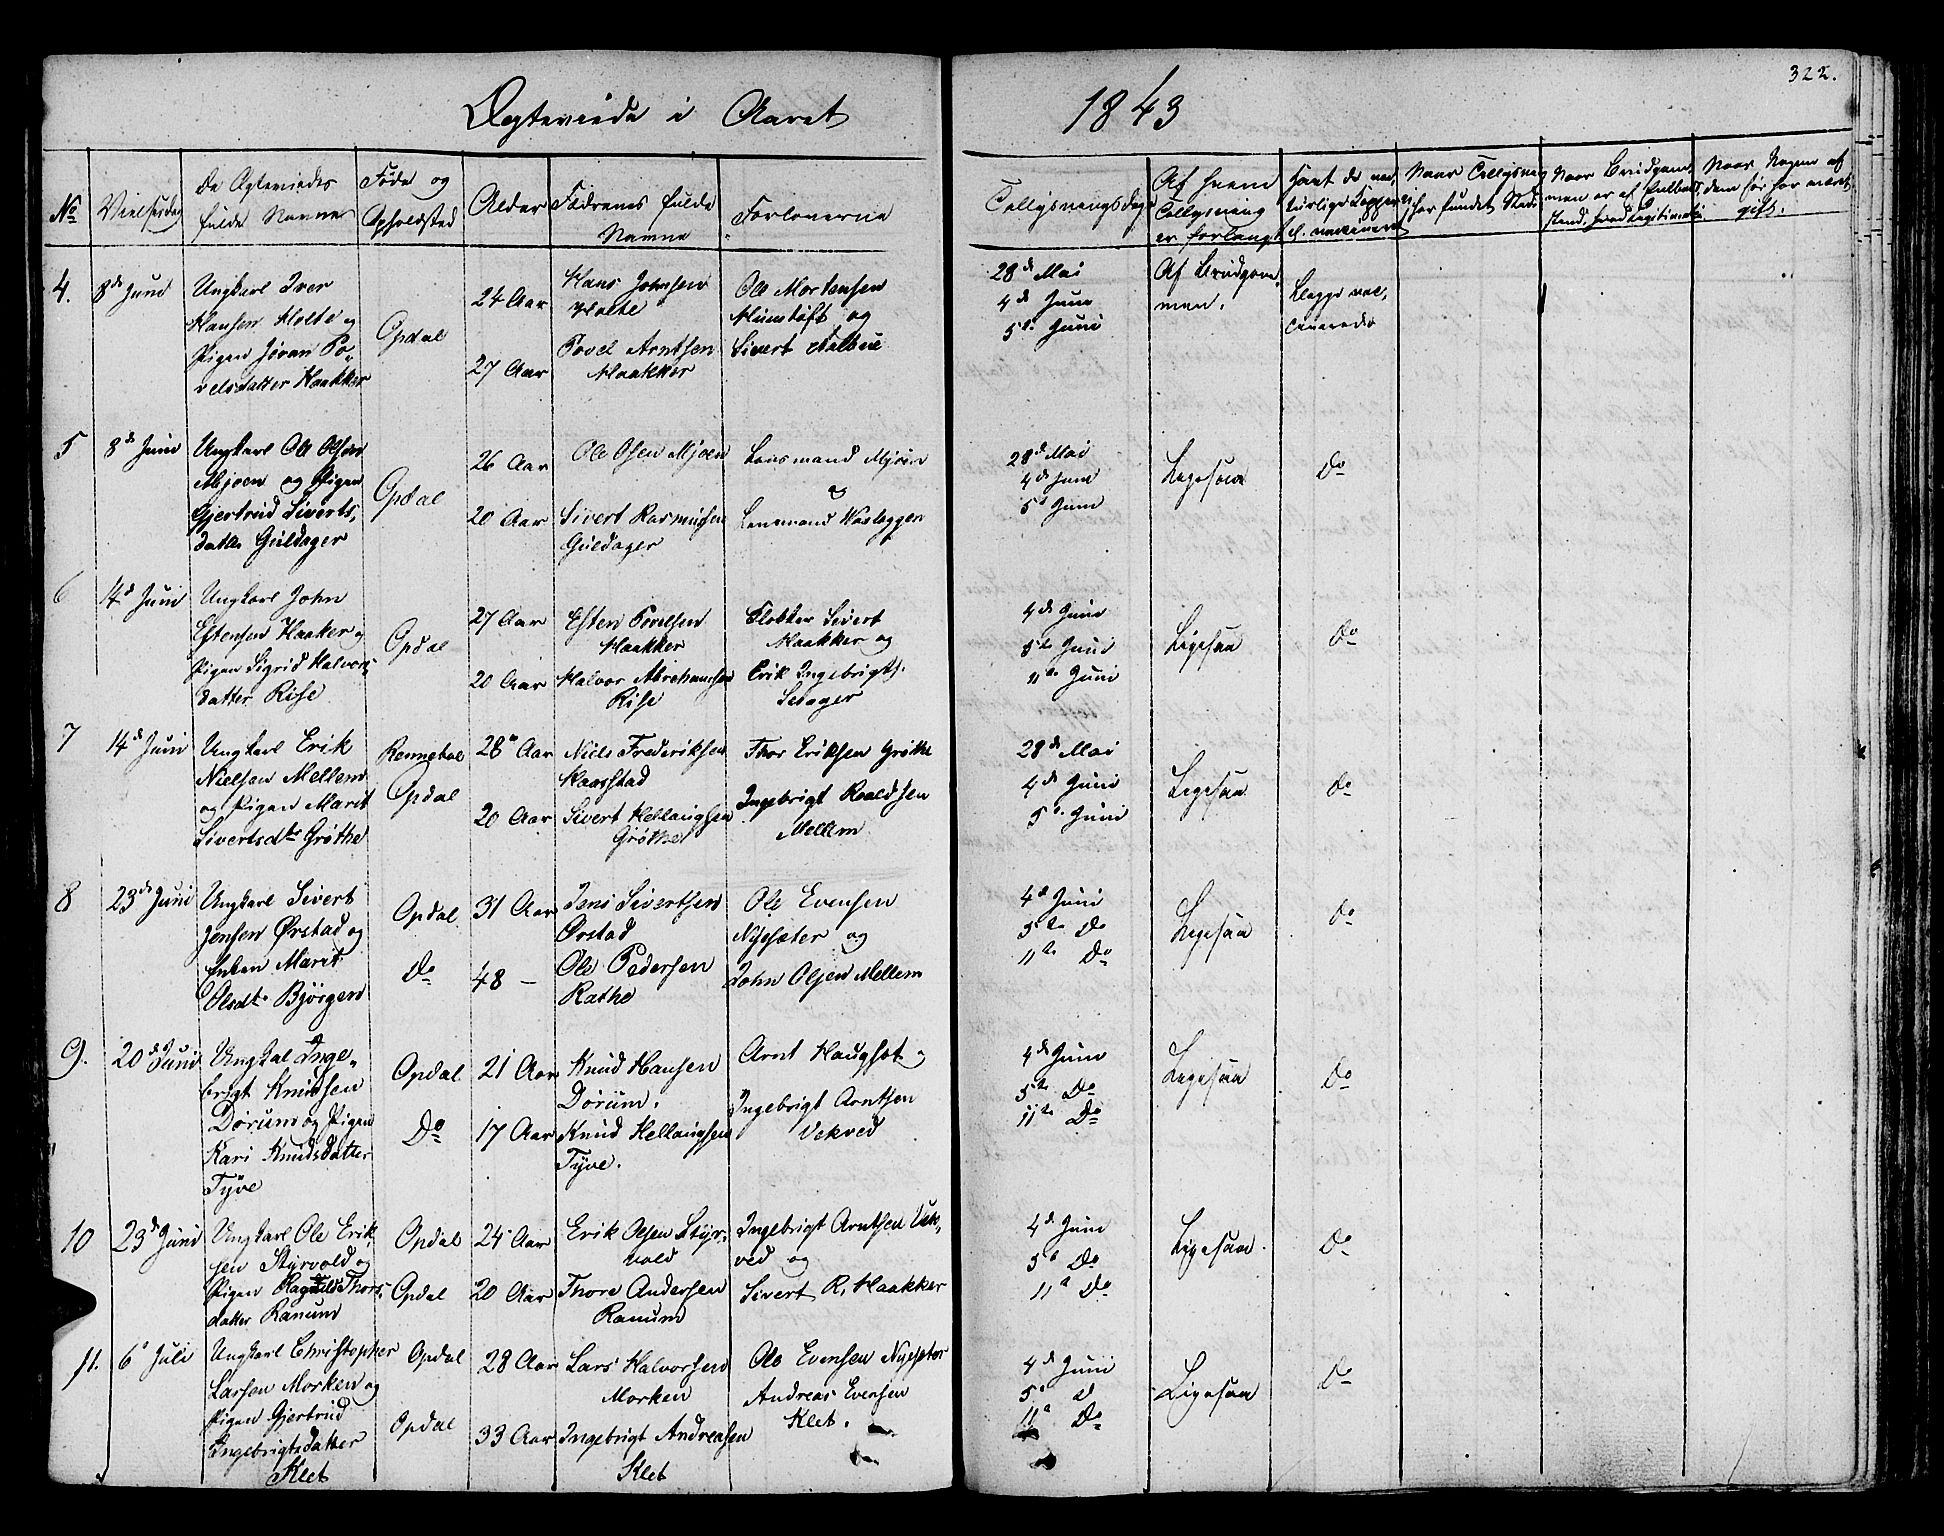 322.
Ægteviede i Aaret 1843
No
Vielsesdag
De Ægteviedes
fulde Navne
Føde og
Opholdsted
Alder
Fædrenes fulde
Navne
Forloverne
Tillysningsdage
Af hvem
Tillysning
er forlangt
Havt de na-
turlige Kopper
el. vaccineret
Naar Tillysning
har fundet Sted
Naar Brudgom-
men er af
stand, hvad Legitimation
Naar Nogen af
dem før har været
gift.
4.
8de Juni
Ungkarl Iver
Hansen Holte og
Pigen Jøran Po-
velsdatter Haakker
Opdal
24 Aar
27 Aar
Hans Johnsen
Holte
Povel Arntsen
Haakker
Ole Mortensen
og
Sivert Aalbue
28de Mai
4de Juni
5te Juni
Af Brudgom-
men.
Begge vac-
cinerede
5
8de Juni
Ungkarl Ole Olsen
Mjoen og Pigen
Gjertrud Siverts-
datter Guldager
Opdal
26 Aar
20 Aar
Ole Olsen Mjoen
Sivert Rasmussen
Guldager
Lensmand Mjoen
og
Lensmand Wasleggen
28de Mai
4de Juni
5te Juni
Ligesaa
Do
6
14de Juni
Ungkarl John
Estensen Haaker og
Pigen Sigrid Halvors-
datter Rise
Opdal
27 Aar
20 Aar
Esten Povelsen
Haakker
Halvor Abrahamsen
Rise
Klokker Sivert
Haakker og
Erik Ingebrigts.
28de Mai
4de Juni
5te Juni
11te Juni
Ligesaa
Do
7
14de Juni
Ungkarl Erik
Nielsen Mellem
og Pigen Marit
Sivertsdtr Grøthe
Rennebo
Opdal
28 Aar
20 Aar
Niels Frederiksen
Haarstad
Sivert Hellaugsen
Grøthe
Thor Eriksen Grøthe
Ingebrigt Roaldsen
Mellem
28de Mai
4de Juni
5te Juni
Ligesaa
Do
8
23de Juni
Ungkarl Sivert
Jensen Ørstad og
Enken Marit
Olsdtr Bjørgen
Opdal
Do
31 Aar
48 —
Jens Sivertsen
Ørstad
Ole Pedersen
Rathe
Ole Evensen
Nysæter og
John Olsen Mellem
4de Juni
5te Do
11te Do
Ligesaa
Do
9.
20de Juni
Ungkal Inge-
brigt Knudsen
Dørum og Pigen
Kari Knudsdatter
Tyve
Opdal
Do
21 Aar
17 Aar
Knud Hansen
Dorum.
Knud Hellaugsen
Tyve.
Arnt Haugset og
Ingebrigt Arntsen
Vekved
4de Juni
5te Do
11te Do
Ligesaa
Do
10
23de Juni
Ungkarl Ole Erik-
sen Styrvold og
Pigen Ragnild Thors-
datter Ranum
Opdal
Opdal
24 Aar
20 Aar
Erik Olsen Styr-
vold
Thore Andersen
Ranum
Ingebrigt Arntsen Vek-
ved og
Sivert R. Haakker
4de Juni
5te Do
11te Do
Ligesaa.
Do
11.
6te Juli
Ungkarl Christopher
Larsen Morken og
Pigen Gjertrud
Ingebrigtsdatter
Klet
Opdal
Opdal
28 Aar
33 Aar
Lars Halvorsen
Morken
Ingebrigt Andreasen
Klet
Ole Evensen Nysæter
Andreas Evensen
Klet.
4de Juni
5te d
11te Do
Ligesaa
Do